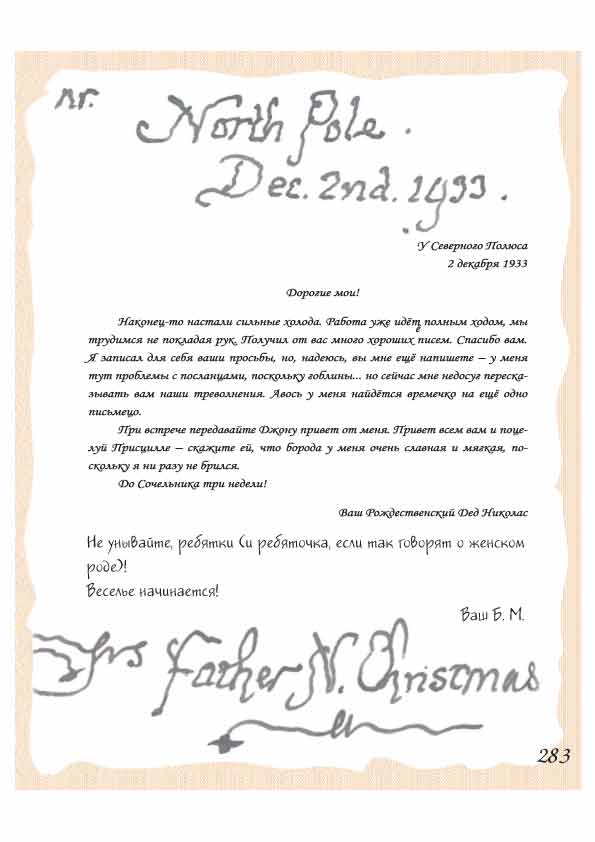 nr.
North Pole.
Dec. 2nd. 1933.
У Северного Полюса
2 декабря 1933
Дорогие мои!
Наконец-то настали сильные холода. Работа уже идёт полным ходом, мы
трудимся не покладая рук. Получил от вас много хороших писем. Спасибо вам.
Я записал для себя ваши просьбы, но, надеюсь, вы мне ещё напишете – у меня
тут проблемы с посланцами, поскольку гоблины... но сейчас мне недосуг переска-
зывать вам наши треволнения. Авось у меня найдётся времечко на ещё одно
письмецо.
При встрече передавайте Джону привет от меня. Привет всем вам и поце-
луй Присцилле – скажите ей, что борода у меня очень славная и мягкая, по-
скольку я ни разу не брился.
До Сочельника три недели!
Ваш Рождественский Дед Николас
Не унывайте, ребятки (и ребяточка, если так говорят о женском
роде)!
Веселье начинается!
Ваш Б. М.
Yrs Father N. Christmas
283